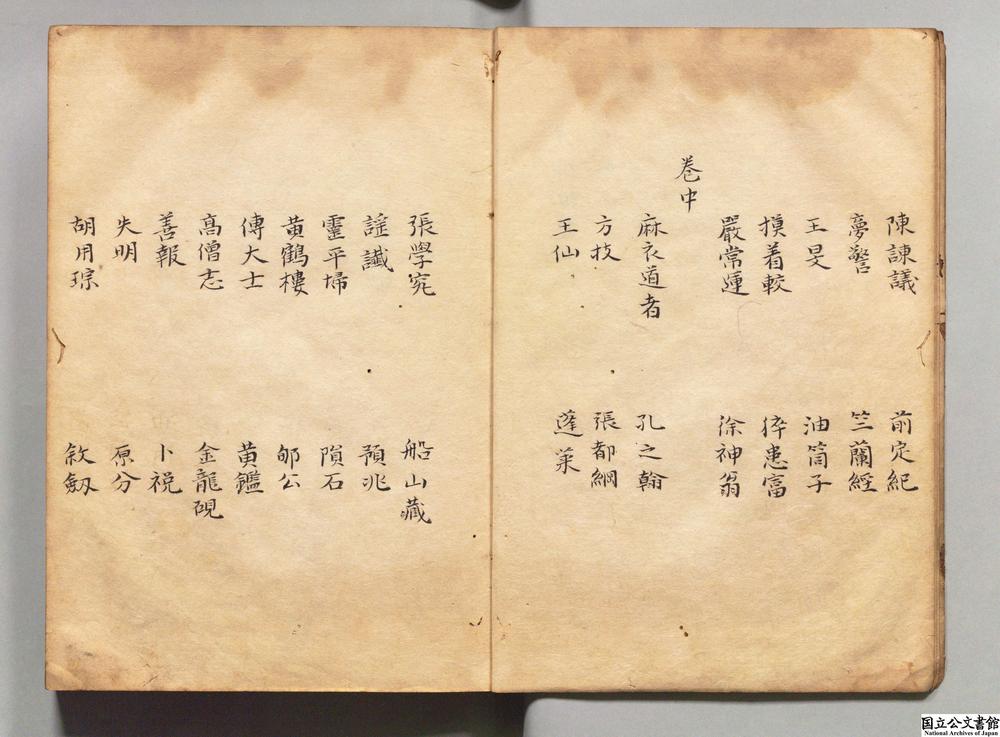 陳諫議 前定紀
夢警 竺蘭經
王旻 油筒子
摸着較 猝患富
嚴常運 徐神翁
巻中
麻衣道者 孔之翰
方技 張都綱
王仙 蓬莱
張學究 船山藏
謡讖 預兆
靈平埽 隕石
黄鶴樓 郇公
傅大士 黄鑑
髙僧志 金龍硯
善報 卜祝
失明 原分
胡用琮 敘劔
国立公文書館
National Archives of Japan